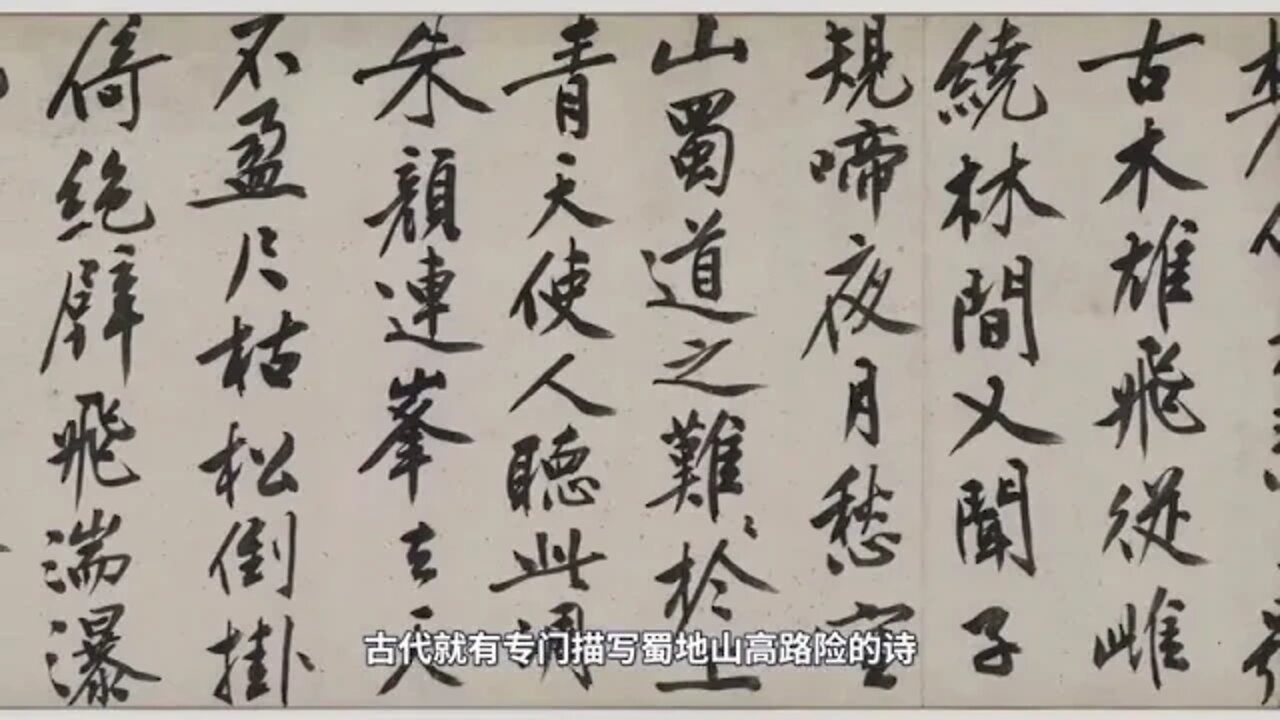 古木雄飛從雌
繞林間又聞子
規啼夜月愁空
山蜀道之難於上
青天使人聽此凋
朱顏連峯去天
不盈尺枯松倒掛
倚絶壁飛湍瀑
古代就有专门描写蜀地山高路险的诗